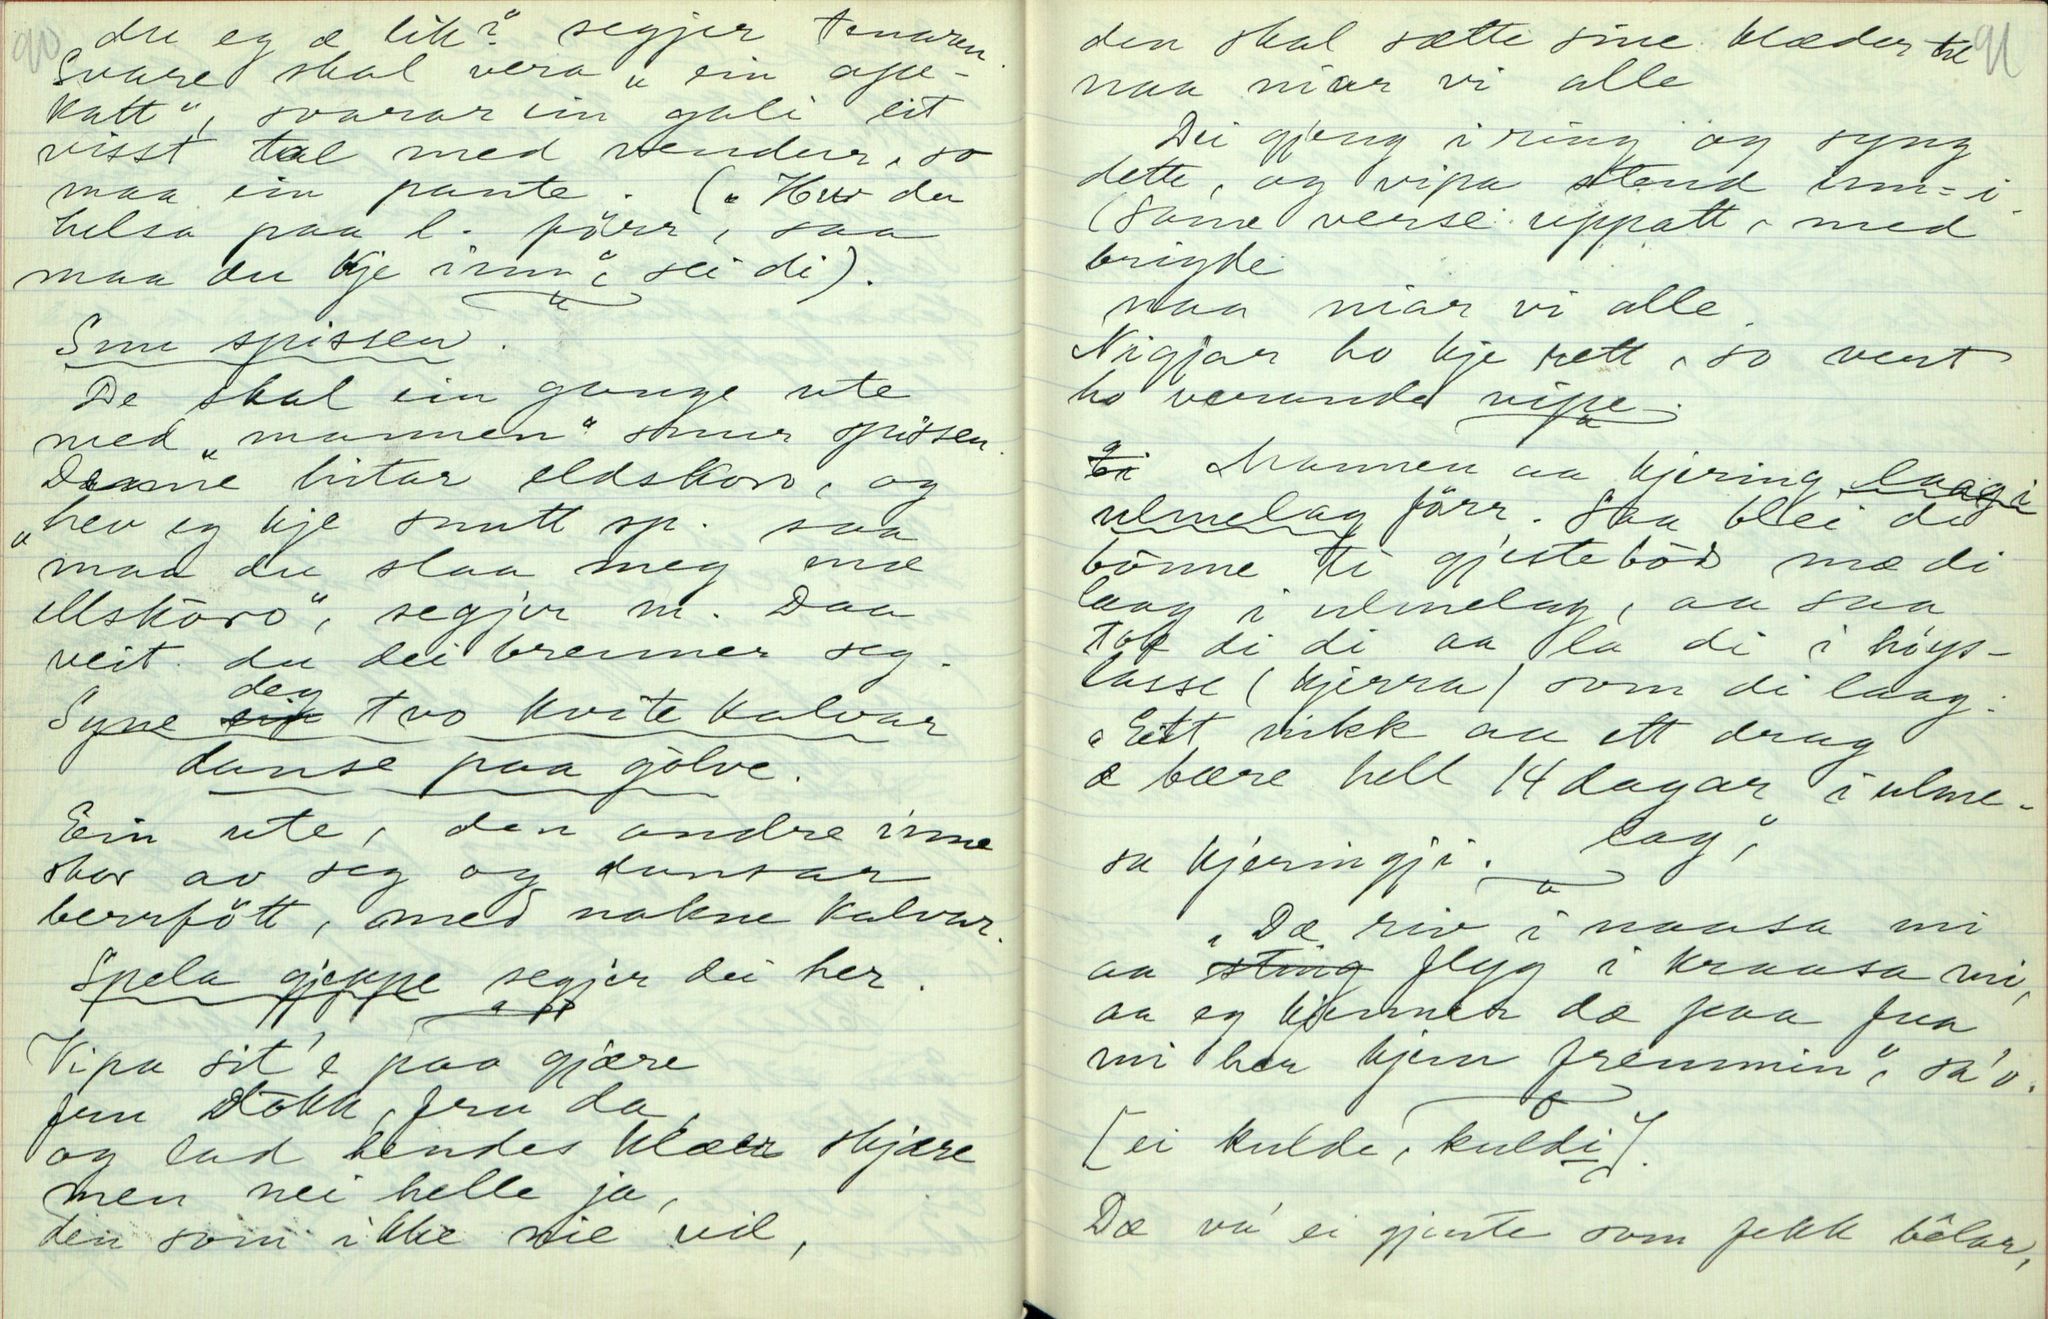 90
du eg æ lik?" segjer tenaren.
Svare skal vera "ein ape-
katt", svarar ein gali eit
visst tal med vendur, so
maa ein pante. ("Hev du
helsa paa l. förr, saa
maa du kje inn", sei di).
Snu spissen.
De skal ein gange ute
med "mannen" snur spissen.
Denne hitar eldskoro, og
"hev eg kje snutt sp. saa
maa du slaa meg mæ
ellskoro", segjer m. Daa
veit du dei brenner seg.
Syne sin deg tvo kvite kalvar
danse paa gôlve.
Ein ute, den andre inne
skor av seg og dansar
berrfött, med nakne kalvar.
Spela gjeppe segjer dei her.
Vipa sit'e paa gjære
fru Stökk, fru da,
og lad hendes klæer skjære
men nei helle ja,
den som ikke nie vil,
91
den skal sætte sine klæder til
naa niar vi alle
Dei gjeng i ring og syng
dette, og vipa stend inn-i.
(Same verse uppatt, med
brigde
naa niar vi alle.
Nigjar ho kje rett, so vert
ho verande vipe.
Ei Mannen aa kjering laag i
ulmelag förr. Saa blei di
bönne ti gjestebôd mæ di
laag i ulmelag, aa saa
tok di di aa la di i höys-
lasse (kjerra) som di laag.
"Eitt rikk aa ett drag
æ bære hell 14 dagar i ulme-
lag",
sa kjeringji.
"Dæ riv i naasa mi
aa sting flyg i kraasa mi,
aa eg kjenner dæ paa fua
mi her kjem fremmin", sa'o.
[ei kulde, kuldi].
Dæ va' ei gjente som fekk bêlar,